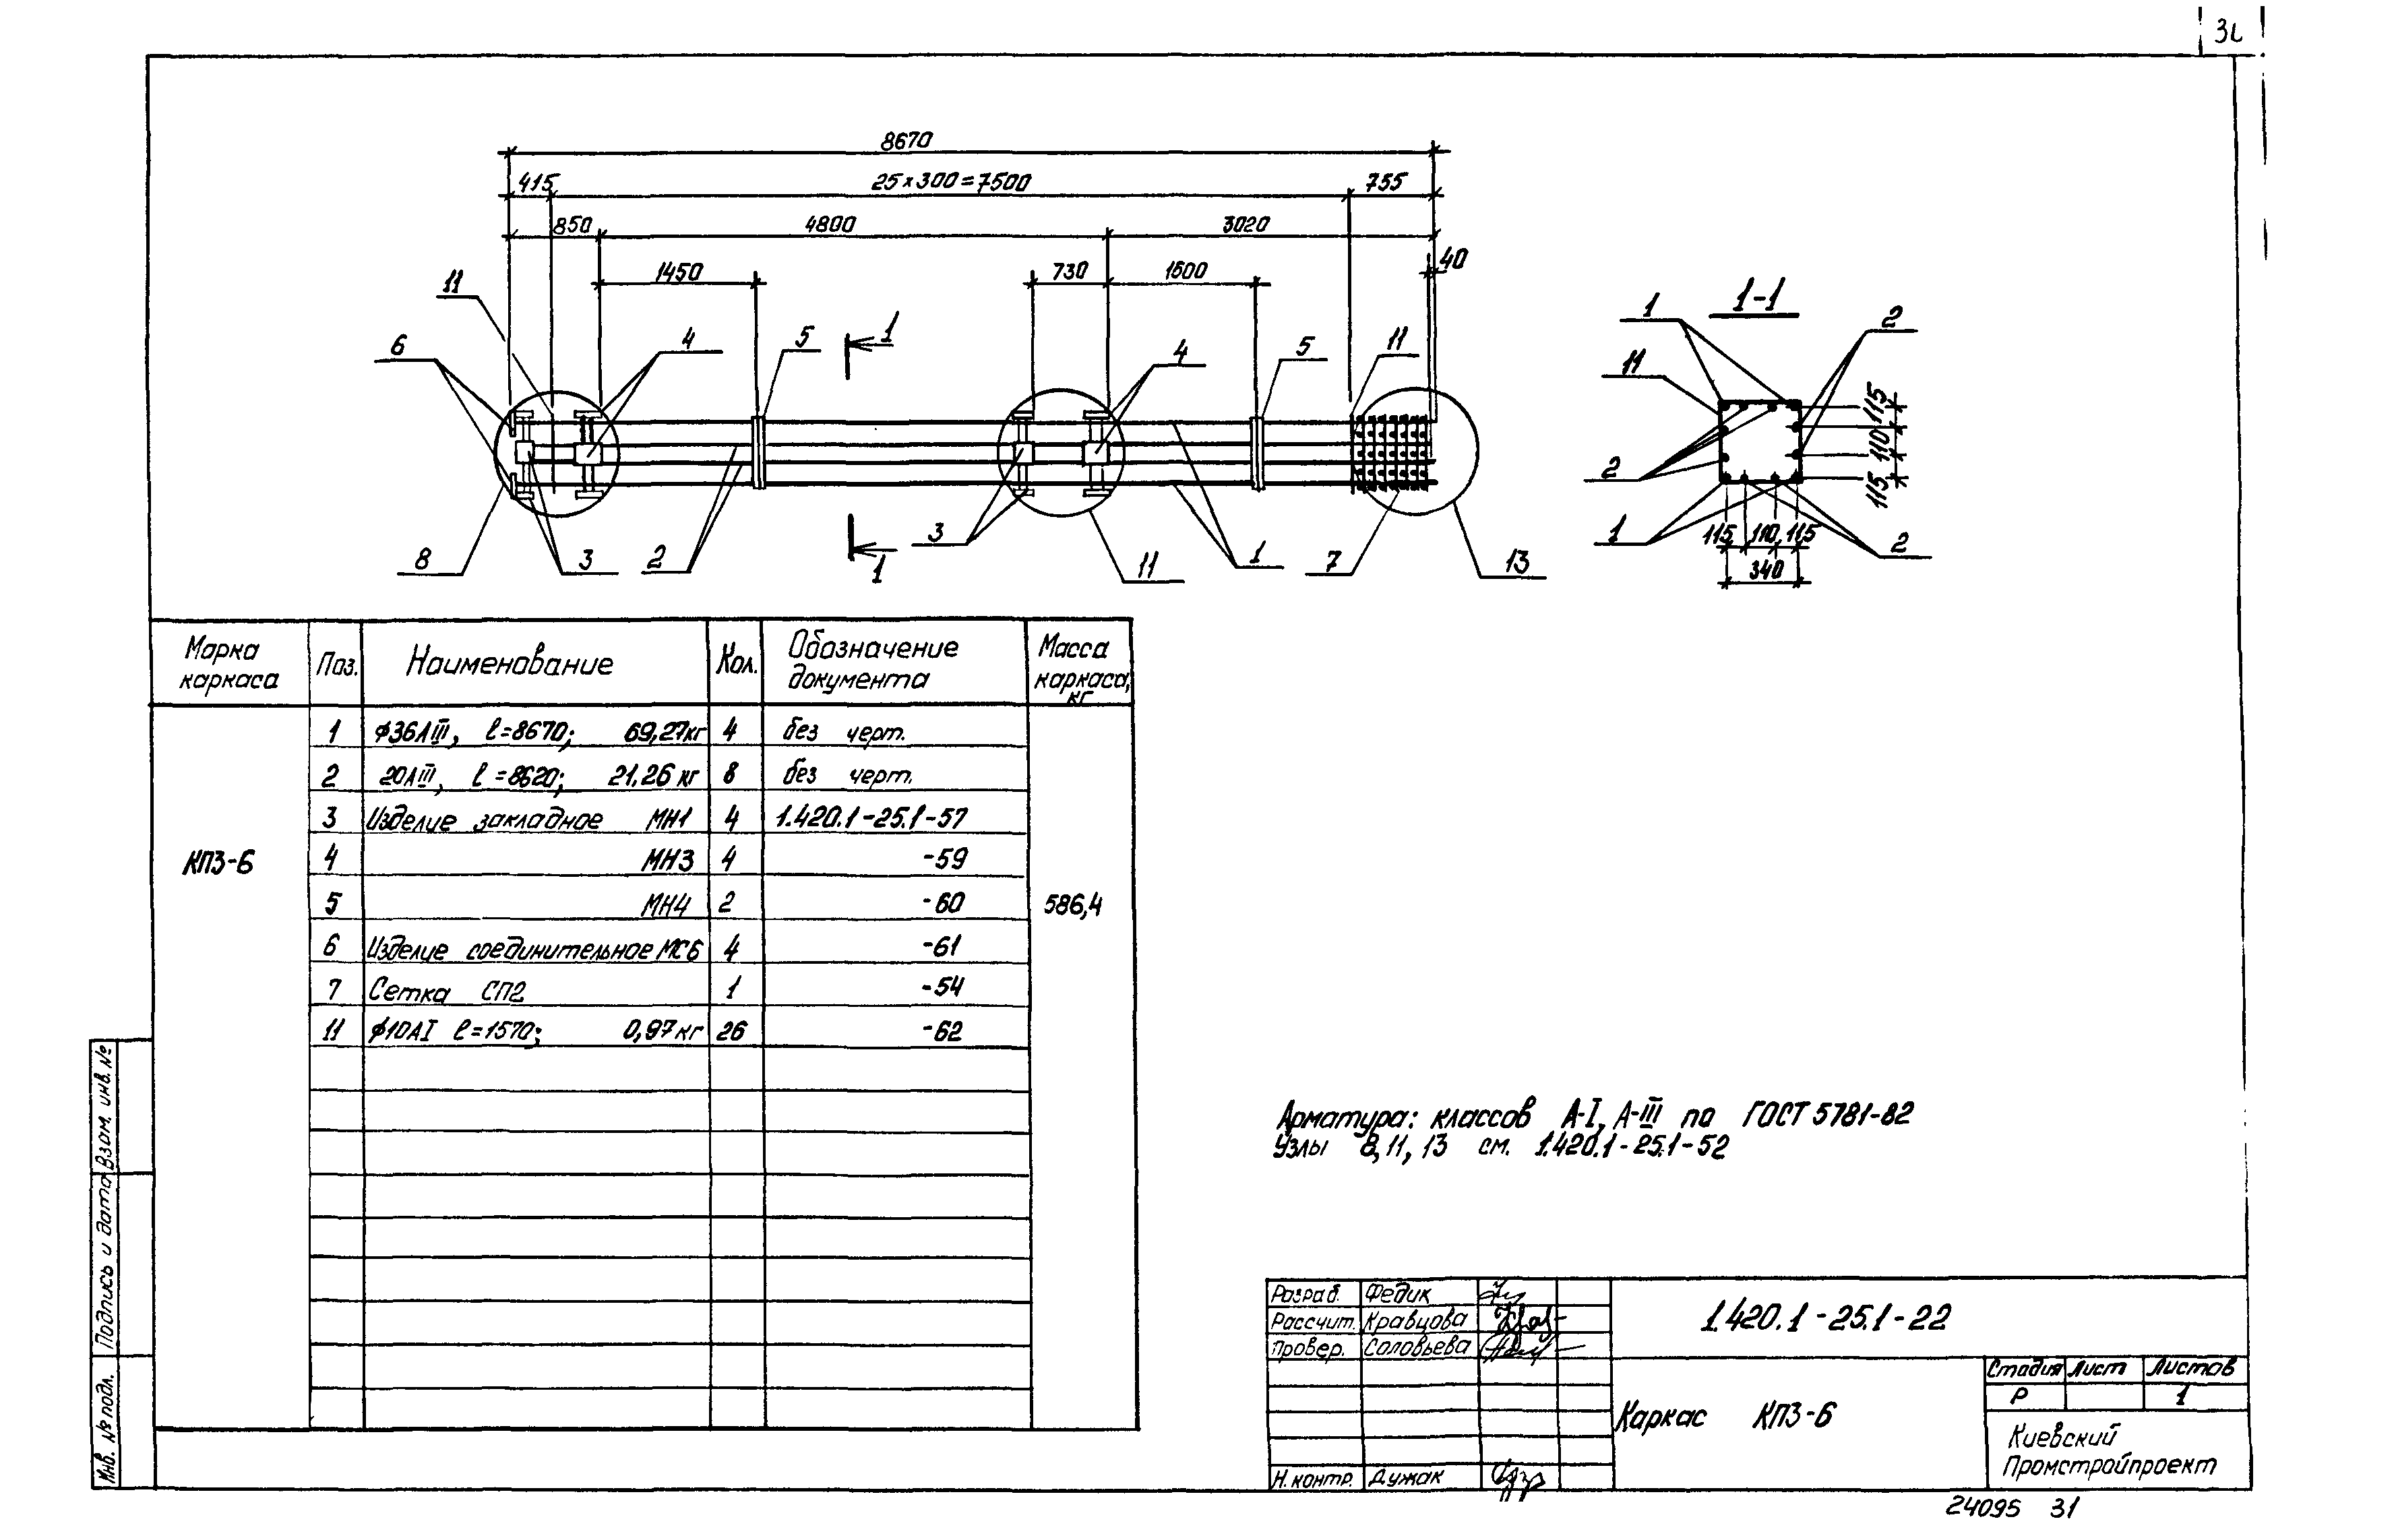 8670
415 25×300=7500 755
850 4800 3020
1450 730 1600 40
11 6 4 5 1 4 5 11
8 3 2 1 3 11 1 7 13
1-1
1 2
11
2
1 2
115 110 115
115 110 115
340
Марка каркаса Поз. Наименование Кол. Обозначение документа Масса каркаса, кг
КП3-6 586,4
1 ϕ36АIII, ℓ=8670; 69,27кг 4 без черт.
2 20АIII, ℓ=8620; 21.26 кг 8 без черт.
3 Изделие закладное МН1 4 1.420.1-25.1-57
4 МН3 4 -59
5 МН4 2 -60
6 Изделие соединительное МС6 4 -61
7 Сетка СП2 1 -54
11 ϕ10АI ℓ=1570; 0,97кг 26 -62
Арматура: классов А-I, А-III по ГОСТ 5781-82
Узлы 8, 11, 13 см. 1.420.1-25.1-52
Инв. № подл. Подпись и дата Взам. инв. №
Разраб. Федик
Рассчит. Кравцова
Провер. Соловьева
Н.контр. Дужак
1.420.1-25.1-22
Каркас КП3-6
Стадия Лист Листов
Р 1
Киевский
Промстройпроект
24095 31